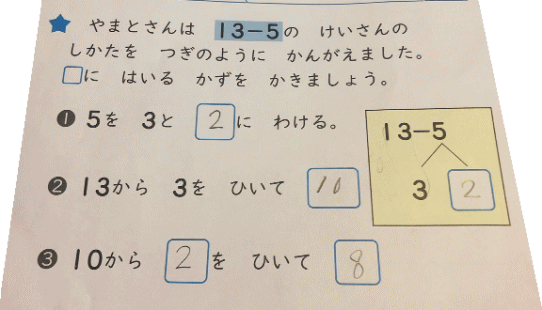 ★ やまとさんは 13−5の けいさんの
しかたを つぎのように かんがえました。
□に はいる かずを かきましょう。
❶ 5を 3と 2に わける。
❷ 13から 3を ひいて 10
❸ 10から 2を ひいて 8
13−5
3 2